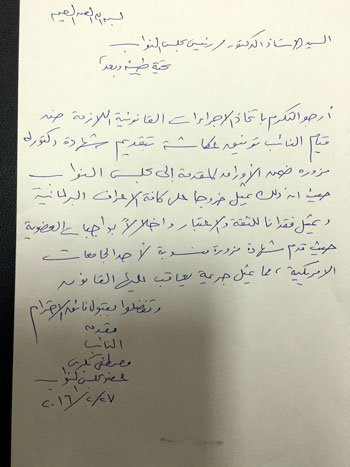 بسم الله الرحمن الرحيم
السيد الاستاذ الدكتور / رئيس مجلس النواب
تحية طيبة وبعد،
أرجو التكرم باتخاذ الإجراءات القانونية اللازمة ضد
قيام النائب توفيق عكاشة بتقديم شهادة دكتوراه
مزوره ضمن الأوراق المقدمة إلى مجلس النواب
حيث ان ذلك يمثل خروجا على كافة الأعراف البرلمانية
ويمثل فقدانا للثقة والإعتبار واخلالاً بواجبات العضوية
حيث قدم شهادة مزورة منسوبة لأحد الجامعات
الامريكية، مما يمثل جريمة يعاقب عليها القانون
وتفضلوا بقبول فائق الإحترام
مقدمه
النائب
مصطفى بكرى
عضو مجلس النواب
٢٠١٦/٢/٢٧